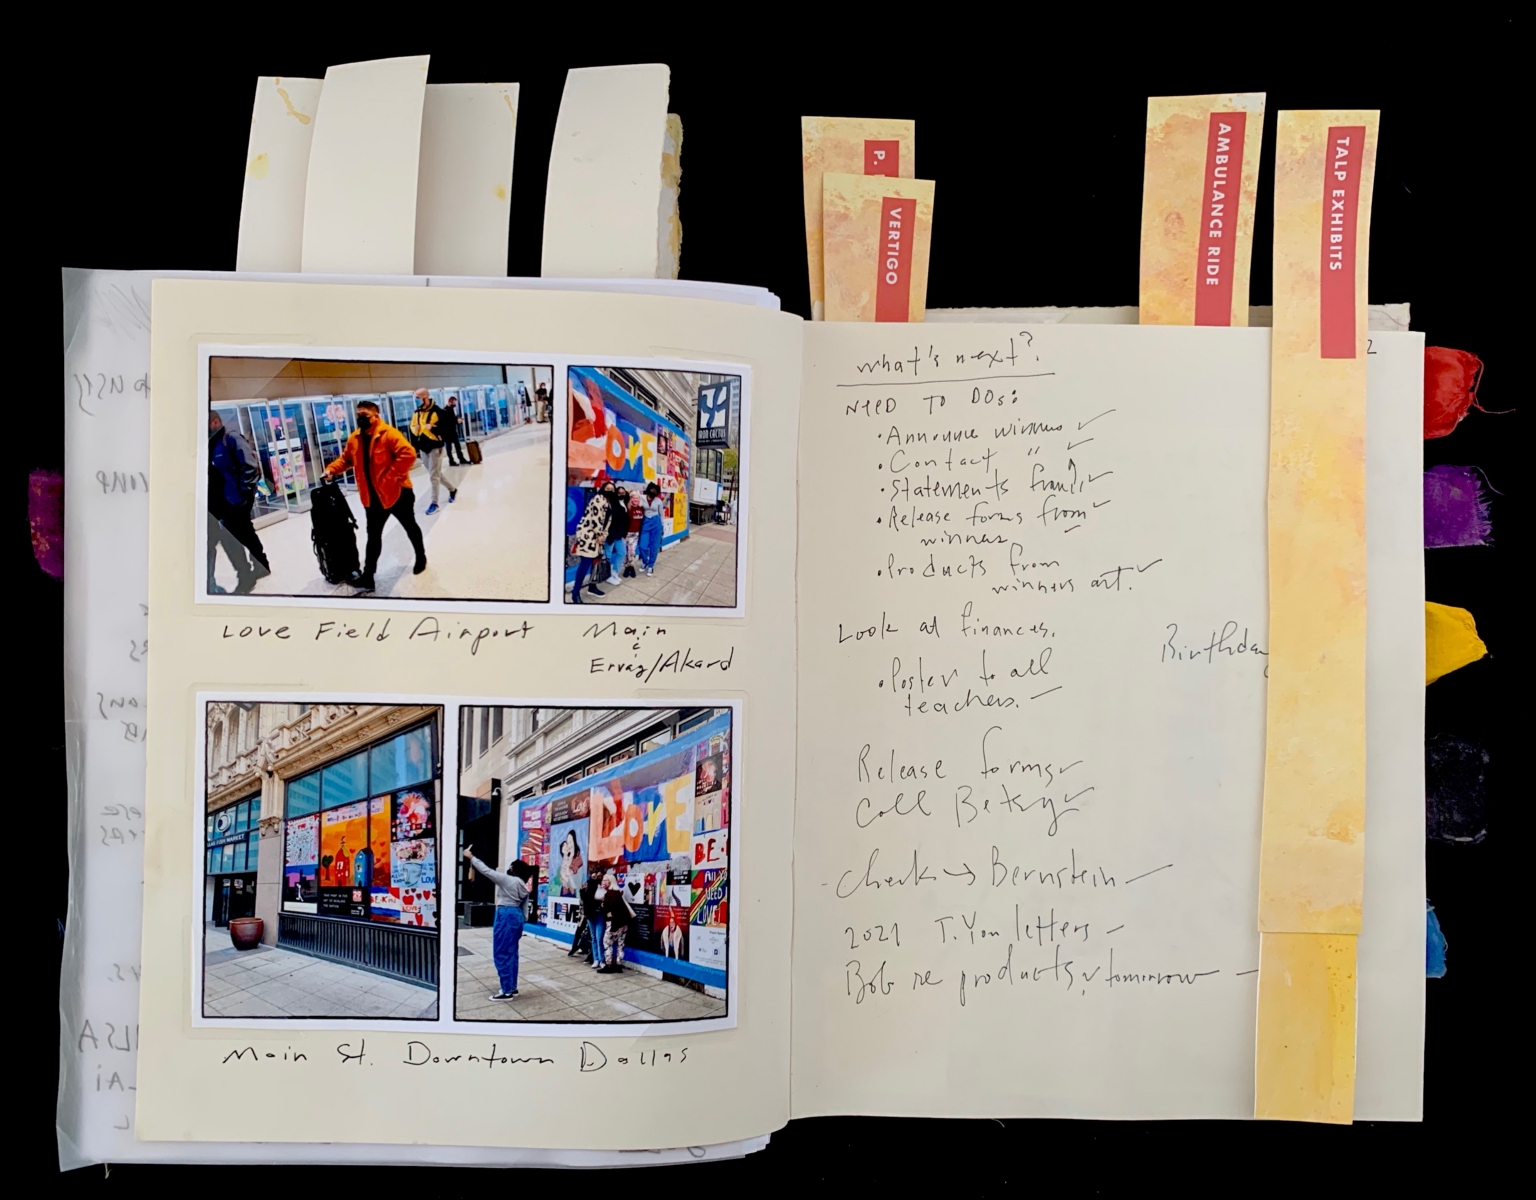 P.
VERTIGO
AMBULANCE RIDE
TALP EXHIBITS
LOVE
IRON CACTUS
BE
Love Field Airport
Main
&
Ervay/Akard
FISH MARKET
BE KIND
LOVE
LOVE
BE
ALL YOU
NEED
LOVE
LOVE
Main St. Downtown Dallas
2
What's next?
NEED TO DOs:
• Announce winners ✓
• Contact " ✓
• Statements from ✓
• Release forms from ✓
winners
• Products from
winners art. ✓
Look at finances.
Birthday
• Poster to all
teachers. –
Release forms ✓
Call Betsy ✓
- Check → Bernstein –
2021 T. You letters –
Bob re products, tomorrow –